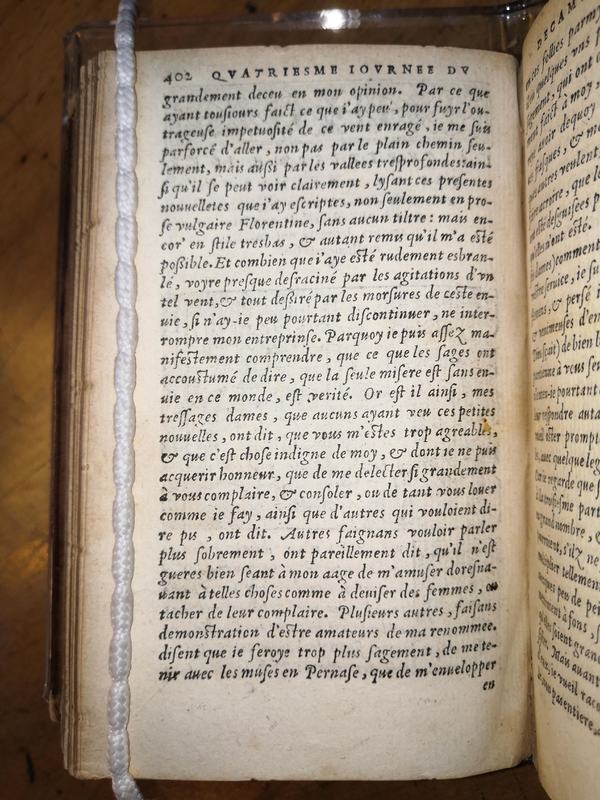 402 QVATRIESME IOVRNEE DV
grandement deceu en mon opinion. Par ce que
ayant tousiours faict ce que i'ay peu, pour fuyr l'ou-
trageuse impetuosité de ce vent enragé, ie me suis
parforcé d'aller, non pas par le plain chemin seu-
lement, mais außi par les vallees tresprofondes: ain-
si qu'il se peut voir clairement, lysant ces presentes
nouuelletes que i'ay escriptes, non seulement en pro-
se vulgaire Florentine, sans aucun tiltre: mais en-
cor' en stile tresbas, & autant remis qu'il m'a esté
poßible. Et combien que i'aye esté rudement esbran-
lé, voyre presque desraciné par les agitations d'vn
tel vent, & tout desiré par les morsures de ceste en-
uie, si n'ay-ie peu pourtant discontinuer, ne inter-
rompre mon entreprinse. Parquoy ie puis assez ma-
nifestement comprendre, que ce que les sages ont
accoustumé de dire, que la seule misere est sans en-
uie en ce monde, est verité. Or est il ainsi, mes
tressages dames, que aucuns ayant veu ces petites
nouuelles, ont dit, que vous m'estes trop agreables,
& que c'est chose indigne de moy, & dont ie ne puis
acquerir honneur, que de me delecter si grandement
à vous complaire, & consoler, ou de tant vous louer
comme ie fay, ainsi que d'autres qui vouloient di-
re pis, ont dit. Autres faignans vouloir parler
plus sobrement, ont pareillement dit, qu'il n'est
gueres bien seant à mon aage de m'amuser doresna-
uant à telles choses comme à deuiser des femmes, ou
tacher de leur complaire. Plusieurs autres, faisans
demonstration d'estre amateurs de ma renommee.
disent que ie feroye trop plus sagement, de me te-
nir auec les muses en Pernase, que de m'enuelopper
en